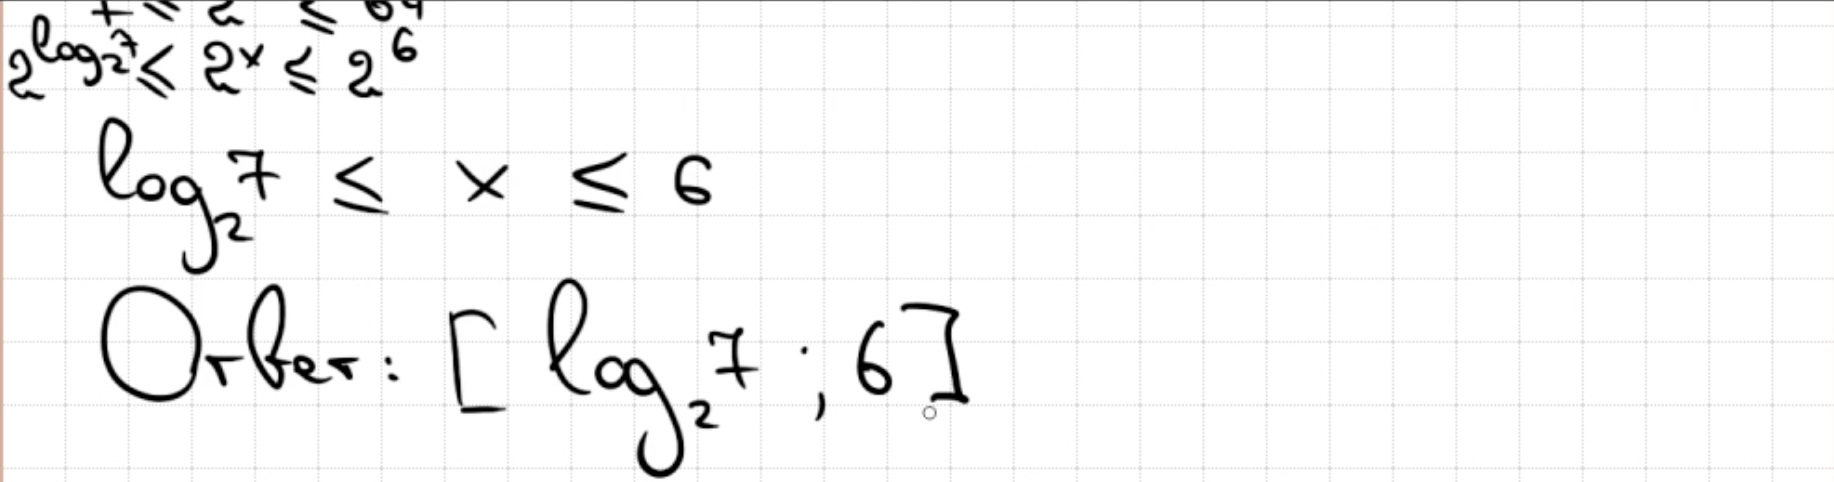 7 ≤ 2 ≤ 64
2^{log_2 7} ≤ 2^x ≤ 2^6
log_2 7 ≤ x ≤ 6
Ответ: [log_2 7 ; 6]